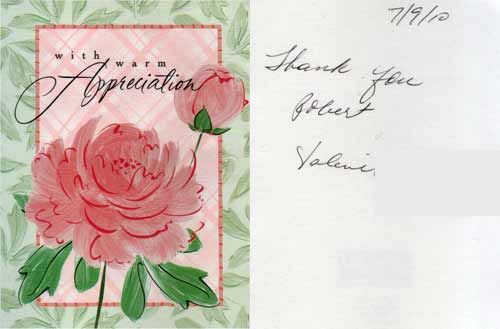 with warm
Appreciation
7/9/10
Thank You
Robert
Valerie